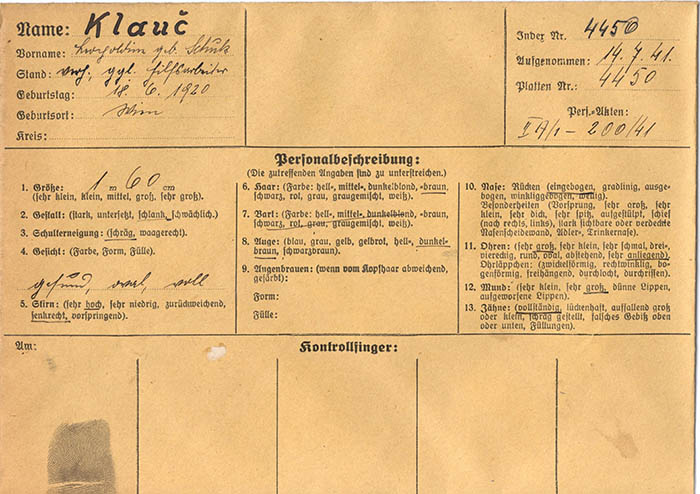 Name: Klauč
Vorname: Leopoldine geb. Schuk
Stand: verh., ggl. Hilfsarbeiter
Geburtstag: 18. 6. 1920
Geburtsort: Wien
Kreis:
Index Nr. 4450
Aufgenommen: 14. 7. 41.
Platten Nr.: 4450
Pers.-Akten:
II A/1 - 200/41
Personalbeschreibung:
(Die zutreffenden Angaben sind zu unterstreichen.)
1. Größe: 1 m 60 cm
(sehr klein, klein, mittel, groß, sehr groß).
2. Gestalt: (stark, untersetzt, schlank, schwächlich).
3. Schulterneigung: (schräg, waagerecht).
4. Gesicht: (Farbe, Form, Fülle).
gesund, oval, voll
5. Stirn: (sehr hoch, sehr niedrig, zurückweichend,
senkrecht, vorspringend).
6. Haar: (Farbe: hell-, mittel-, dunkelblond, -braun,
schwarz, rot, grau, graugemischt, weiß).
7. Bart: (Farbe: hell-, mittel-, dunkelblond, -braun,
schwarz, rot, grau, graugemischt, weiß).
8. Auge: (blau, grau, gelb, gelbrot, hell-, dunkel-
braun, schwarzbraun).
9. Augenbrauen: (wenn vom Kopfhaar abweichend,
gefärbt):
Form:
Fülle:
10. Nase: Rücken (eingebogen, gradlinig, ausge-
bogen, winkliggebogen, wellig).
Besonderheiten (Vorsprung, sehr groß, sehr
klein, sehr dick, sehr spitz, aufgestülpt, schief
(nach rechts, links), stark sichtbare oder verdeckte
Nasenscheidewand, Adler-, Trinkernase).
11. Ohren: (sehr groß, sehr klein, sehr schmal, drei-,
viereckig, rund, oval, abstehend, sehr anliegend).
Ohrläppchen: (zwickelförmig, rechtwinklig, bo-
genförmig, freihängend, durchlocht, durchrissen).
12. Mund: (sehr klein, sehr groß, dünne Lippen,
aufgeworfene Lippen).
13. Zähne: (vollständig, lückenhaft, auffallend groß
oder klein, schräg gestellt, falsches Gebiß oben
oder unten, Füllungen).
Am:
Kontrollfinger: